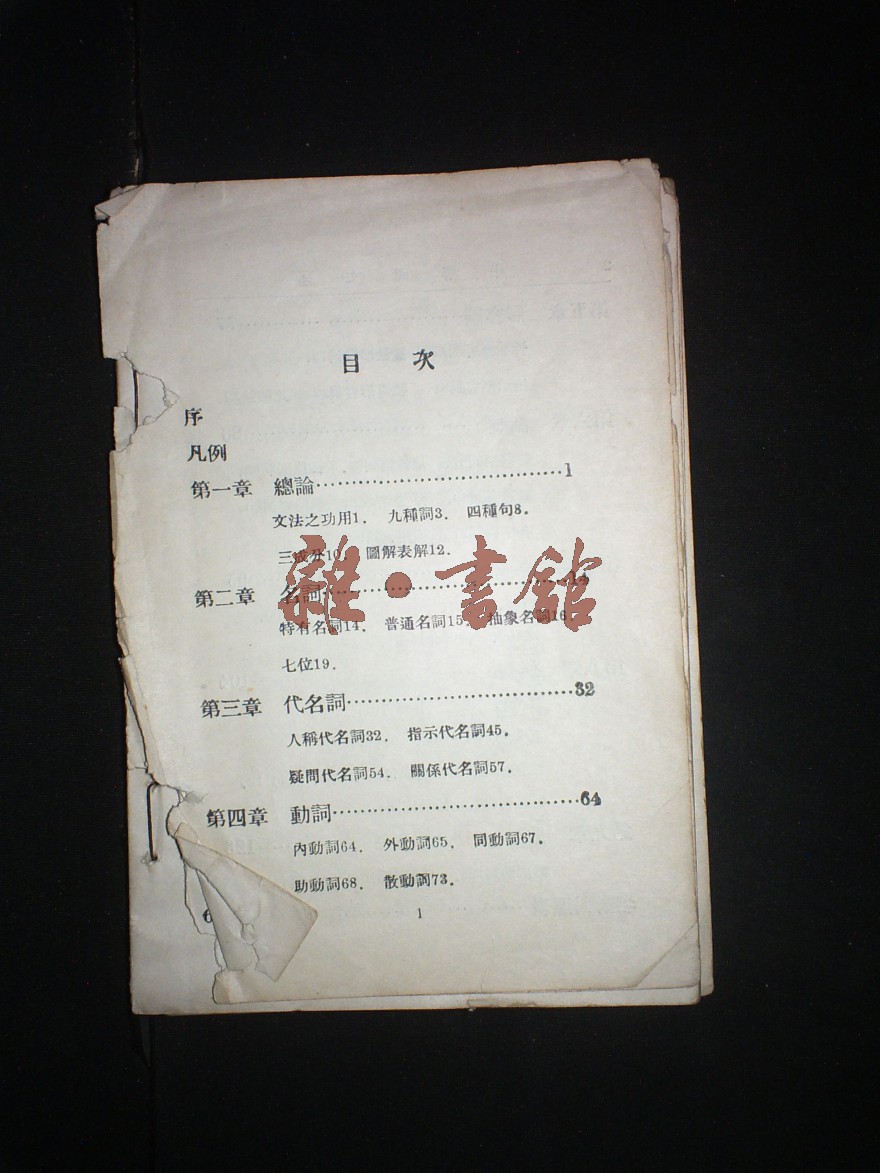 目　次
序
凡例
第一章　總論……………………………1
文法之功用1．　九種詞3．　四種句8．
三成分10．　圖解表解12．
雜·書館
第二章　名詞……………………………14
特有名詞14．　普通名詞15．　抽象名詞16．
七位19．
第三章　代名詞…………………………32
人稱代名詞32．　指示代名詞45．
疑問代名詞54．　關係代名詞57．
第四章　動詞……………………………64
內動詞64．　外動詞65．　同動詞67．
助動詞68．　散動詞73．
1